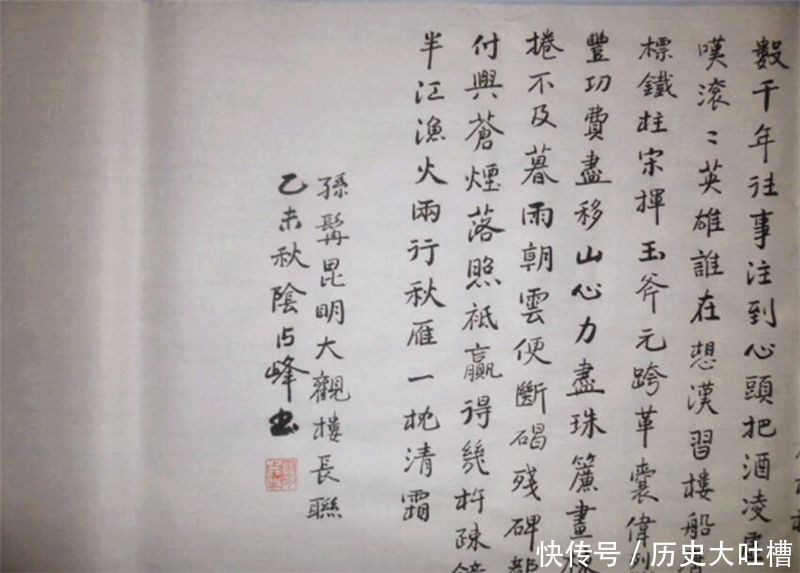 數千年往事注到心頭把酒凌
嘆滚〻英雄誰在想漢習樓船
標鐵柱宋揮玉斧元跨革囊偉烈
豐功費盡移山心力盡珠簾畫
捲不及暮雨朝雲便斷碣残碑都
付與蒼煙落照祗贏得幾杵疎鐘
半江漁火兩行秋雁一枕清霜
孫髯昆明大觀樓長聯
乙未秋陰占峰书
快传号/历史大吐槽